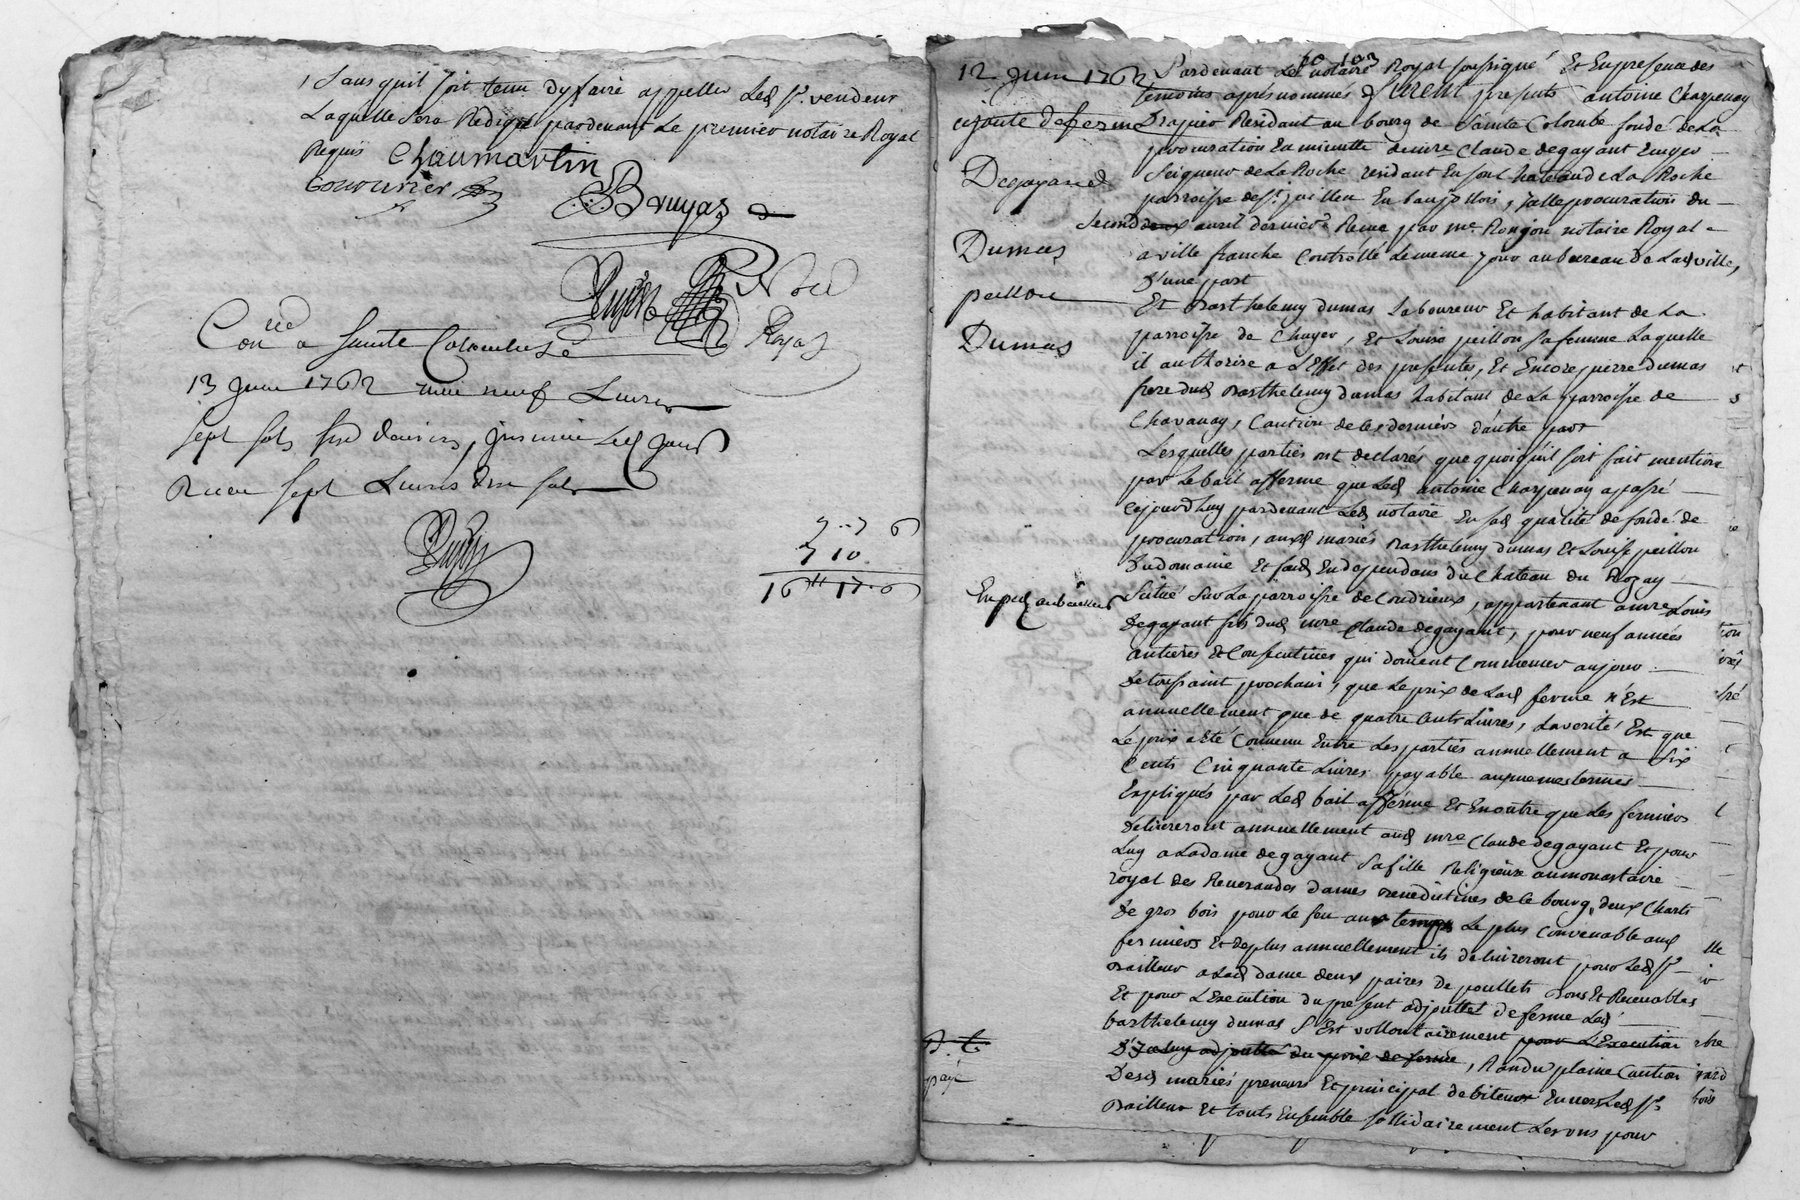 Sans quil soit tenu dy faire appeller led sr. vendeur
Laquelle sera Redigé pardevant Le premier notaire Royal
Requis Chaumartin
Bruyas
Con a Sainte Colombe Le
13 Juin 1762 neuf Livres
sept sols six deniers,
Receu sept Livres dix sols
7..7 6
7 10
16tt 17.6
fo 103
12 Juin 1762
ajoute de ferme
Degayand
Dumas
peillon
Dumas
Pardevant Le notaire Royal soussigné Et En presence des
temoins aprés nommés furent presents antoine Charpenay
Drapier Residant au bourg de Sainte Colombe fondé de La
procuration de mre Claude degayant Ecuyer
Seigneur de La Roche residant En son chateau de La Roche
parroisse de st. juillen En baujollois, par procuration du
second avril dernier Reçue par me. notaire Royal
a ville franche Controllé Le meme jour au bureau de Lad ville,
D'une part
Et Barthelemy dumas Laboureur Et habitant de La
parroisse de Chuyer, Et Louise peillon sa femme Laquelle
il authorise a L'Effet des presentes, Et Encore pierre dumas
frere dud Barthelemy dumas habitant de La parroisse de
Chavanay, Caution de ces derniers d'autre part
Lesquelles parties ont declarés que quoiquil soit fait mention
par Le bail afferme que Led antoine Charpenay a passé
cejourd'huy pardevant Led notaire En sad qualité de fondé de
procuration, auxd mariés Barthelemy dumas Et Louise peillon
Du domaine Et fond En dependans du Chateau du Rozay
Situé Sur La parroisse de Condrieux, appartenant a mre Louis
Degayant fils dud mre Claude degayant, pour neuf années
antieres Et Consecutives qui doivent Commencer au jour
De toussaint prochain, que Le prix de Lad ferme n'Est
annuellement que de quatre Cents Livres, La verité Est que
Le prix a Eté Convenu Entre Les parties annuellement a Six
Cents Cinquante Livres payable aux memes termes
Expliqués par Led bail afferme Et En outre que Les fermiers
delivreront annuellement aud mre Claude degayant Et pour
Luy a La dame degayant Sa fille Religieuse au monastaire
royal des Reverandes dames Benedictines de ce bourg, deux Charts
de gros bois pour Le feu au temps Le plus convenable aux
fermiers Et de plus annuellement ils delivreront pour Led sr
Bailleur a Lad dame deux paires de poullets Bons Et Recevables
Et pour L'Execution du present adjouttet de ferme Led
barthelemy dumas S'Est vollontairement pour L'Execution
adjoutté du prix de ferme, Randu plaine Caution
Desd mariés preneurs Et principal debiteur Envers Led sr
Bailleur Et touts Ensemble sollidairement Les uns pour